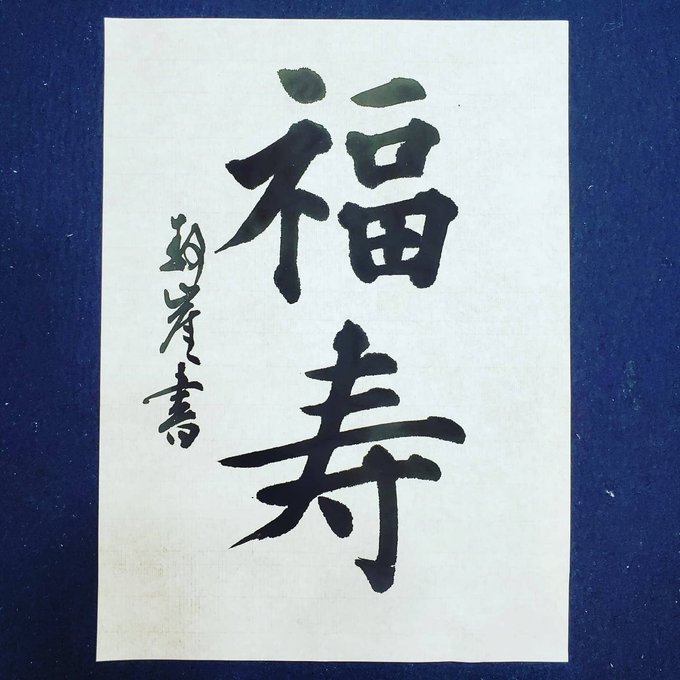 福寿
崖書